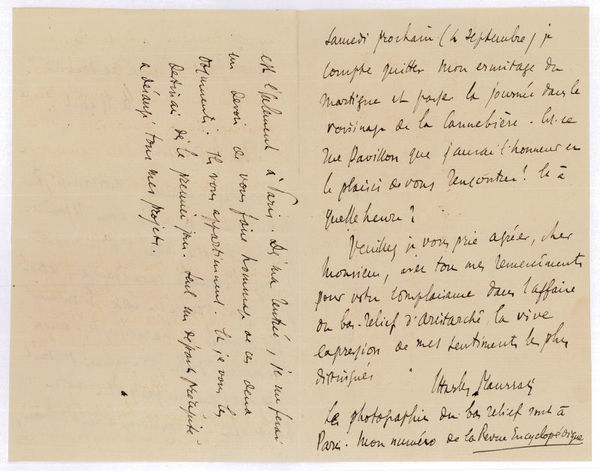 Samedi prochain (4 septembre) je
compte quitter mon ermitage du
Martigue et passer la journée dans le
voisinage de la Cannebière. Est-ce
rue Pavillon que j'aurai l'honneur et
le plaisir de vous rencontrer? Et à
quelle heure?
Veuillez je vous prie agréer, cher
monsieur, avec tous mes remerciements
pour votre complaisance dans l'affaire
du bas-relief d'Aristarchè, la vive
expression de mes sentiments les plus
distingués
Charles Maurras
Les photographies du bas relief sont à
Paris. Mon numéro de la Revue Encyclopédique
est également à Paris. Dès ma rentrée, je me ferai
un devoir de vous faire hommage de ces deux
documents. Ils vous appartiennent. Et je vous les
destinai dès le premier jour. Seul un départ précipité
a dérangé tous mes projets.